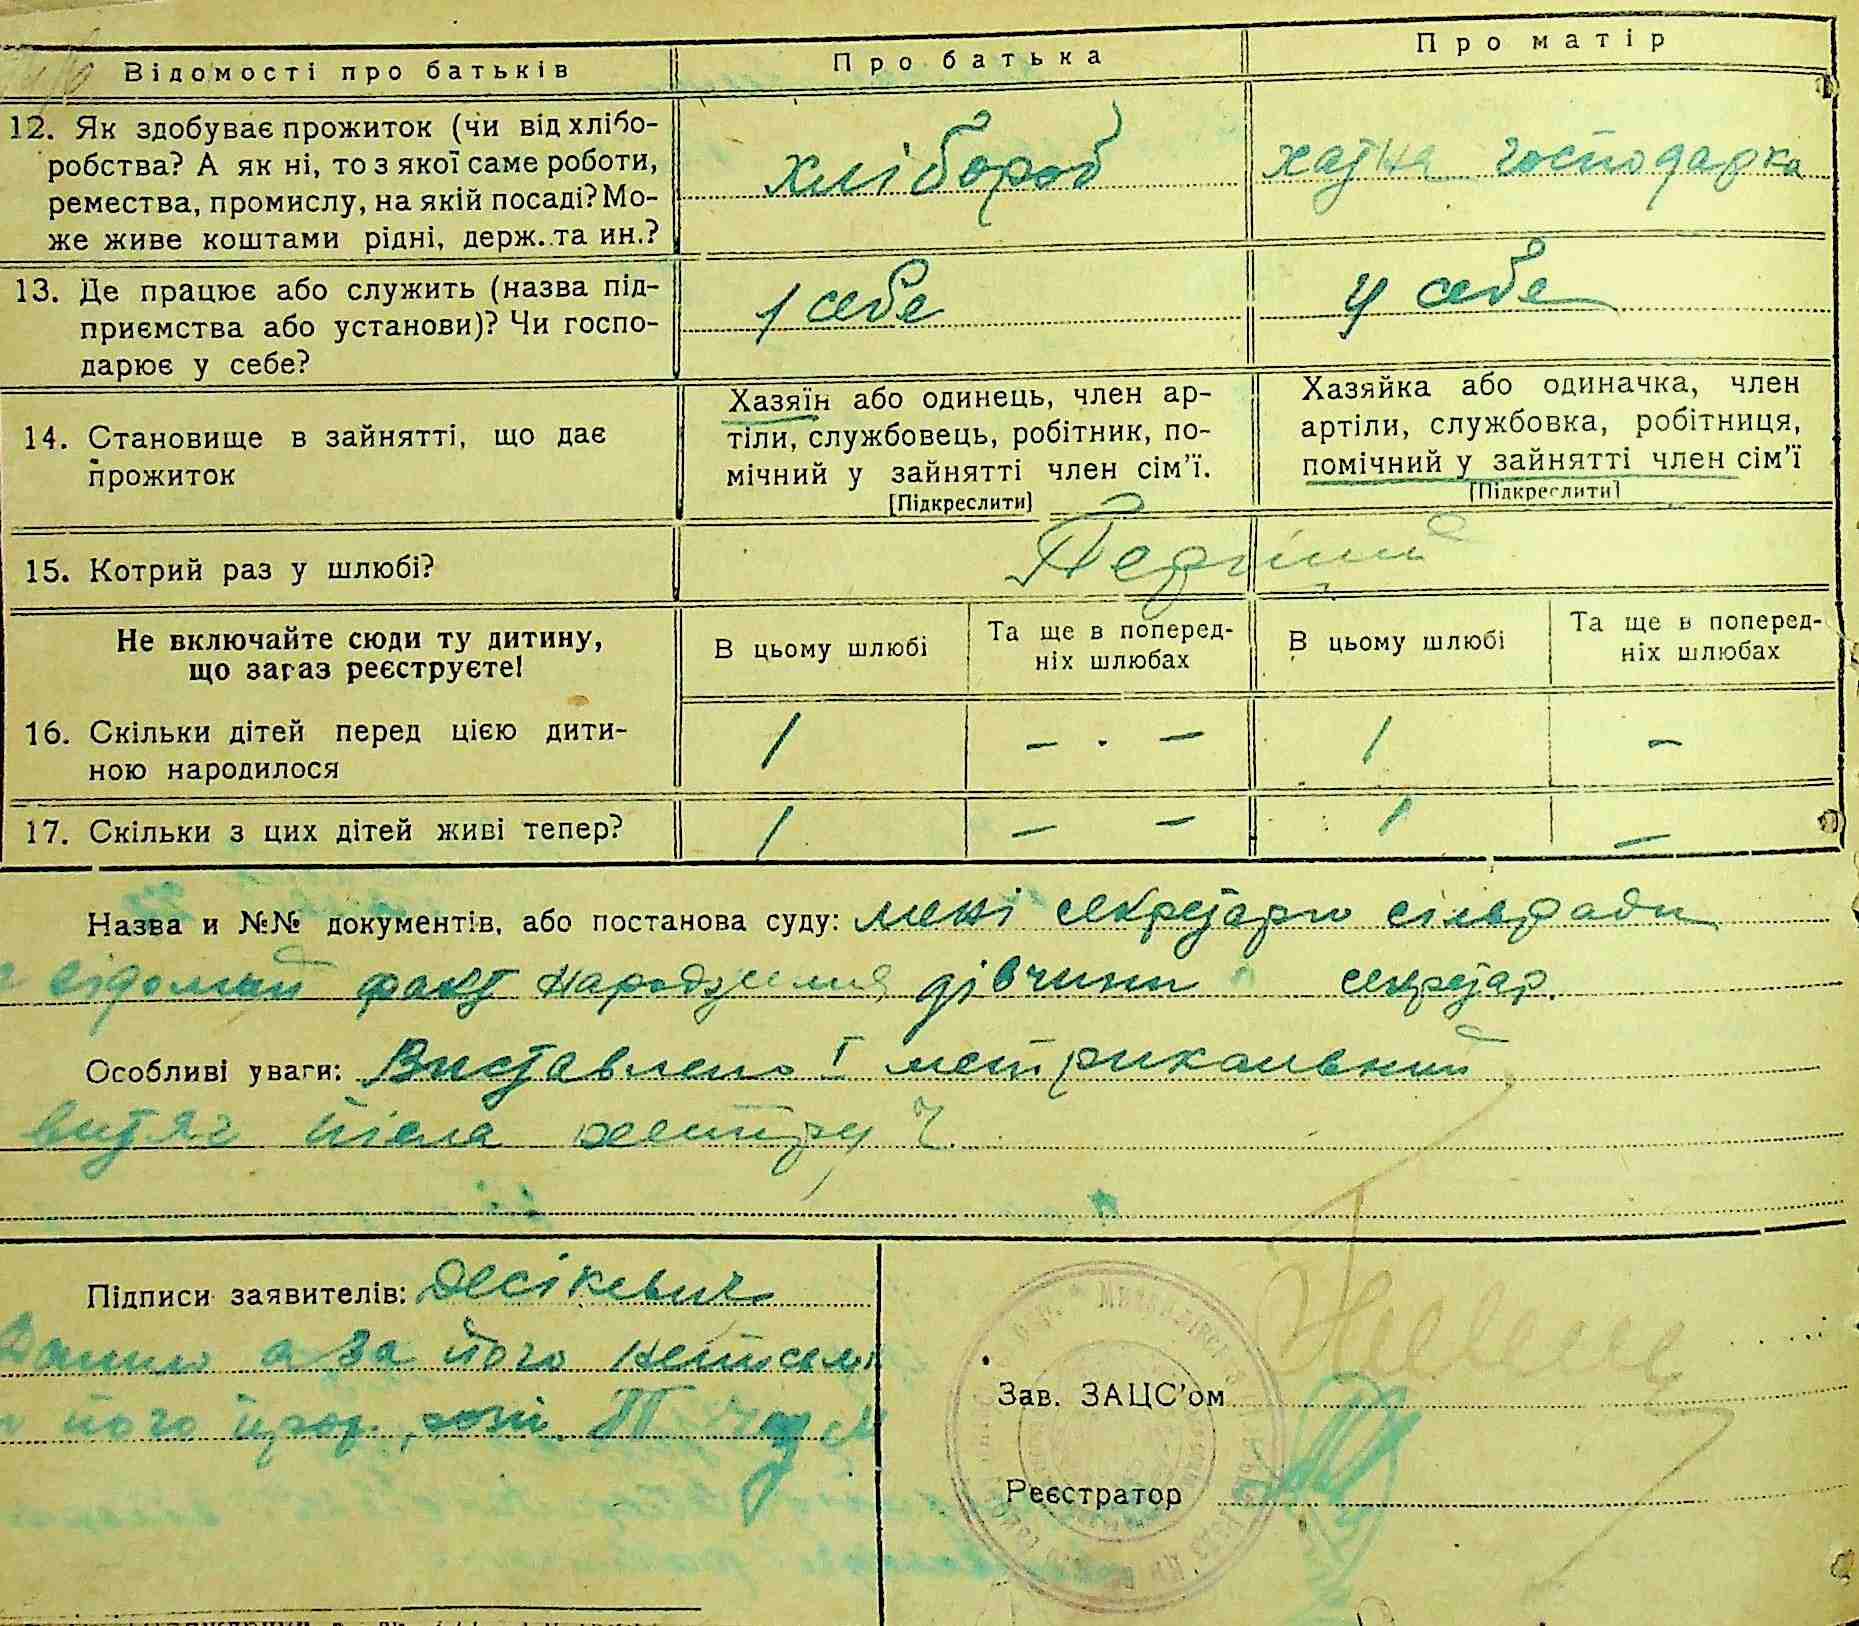 Відомості про батьків
Про батька
Про матір
12. Як здобуває прожиток (чи від хлібо-
робства? А як ні, то з якої саме роботи,
ремества, промислу, на якій посаді? Мо-
же живе коштами рідні, держ. та ин.?
хлібороб
хатня господарка
13. Де працює або служить (назва під-
приємства або установи)? Чи госпо-
дарює у себе?
у себе
у себе
14. Становище в зайнятті, що дає
прожиток
Хазяїн або одинець, член ар-
тіли, службовець, робітник, по-
мічний у зайнятті член сім'ї.
[Підкреслити]
Хазяйка або одиначка, член
артіли, службовка, робітниця,
помічний у зайнятті член сім'ї
[Підкреслити]
15. Котрий раз у шлюбі?
Перший
Не включайте сюди ту дитину,
що зараз реєструєте!
В цьому шлюбі
Та ще в поперед-
ніх шлюбах
В цьому шлюбі
Та ще в поперед-
ніх шлюбах
16. Скільки дітей перед цією дити-
ною народилося
1
— . —
1
—
17. Скільки з цих дітей живі тепер?
1
— —
1
—
Назва и №№ документів, або постанова суду: мені секретарю сільради
відомий факт народження дівчини секретар.
Особливі уваги: Виставлено І метрикальний
витяг
Підписи заявителів: Десікевич
Данило а за його неписьм
його прос.
Зав. ЗАЦС'ом
Реєстратор